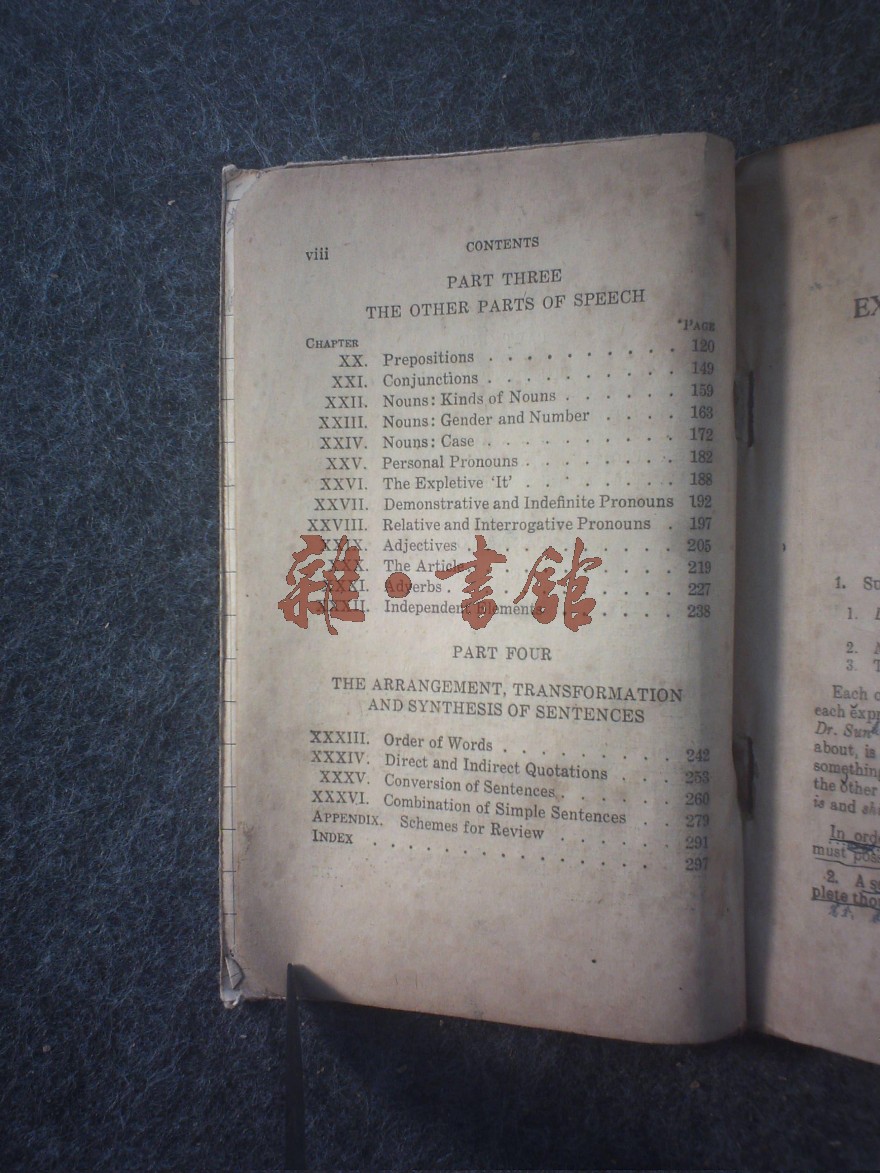 viii CONTENTS
PART THREE
THE OTHER PARTS OF SPEECH
CHAPTER PAGE
XX. Prepositions . . . . . . . . . . 120
XXI. Conjunctions . . . . . . . . . . 149
XXII. Nouns: Kinds of Nouns . . . . . . 159
XXIII. Nouns: Gender and Number . . . . 163
XXIV. Nouns: Case . . . . . . . . . . 172
XXV. Personal Pronouns . . . . . . . . 182
XXVI. The Expletive 'It' . . . . . . . . 188
XXVII. Demonstrative and Indefinite Pronouns 192
XXVIII. Relative and Interrogative Pronouns . 197
XXIX. Adjectives . . . . . . . . . . . 205
XXX. The Article . . . . . . . . . . 219
XXXI. Adverbs . . . . . . . . . . . . 227
XXXII. Independent Elements . . . . . . 238
雜·書館
PART FOUR
THE ARRANGEMENT, TRANSFORMATION
AND SYNTHESIS OF SENTENCES
XXXIII. Order of Words . . . . . . . . . 242
XXXIV. Direct and Indirect Quotations . . . 253
XXXV. Conversion of Sentences . . . . . . 260
XXXVI. Combination of Simple Sentences . . 279
APPENDIX. Schemes for Review . . . . . . 291
INDEX . . . . . . . . . . . . . . 297
1.
1.
2.
3.
Each
each
Dr. Sun
about, is
something
the other
is and
In
must
2. A
plete